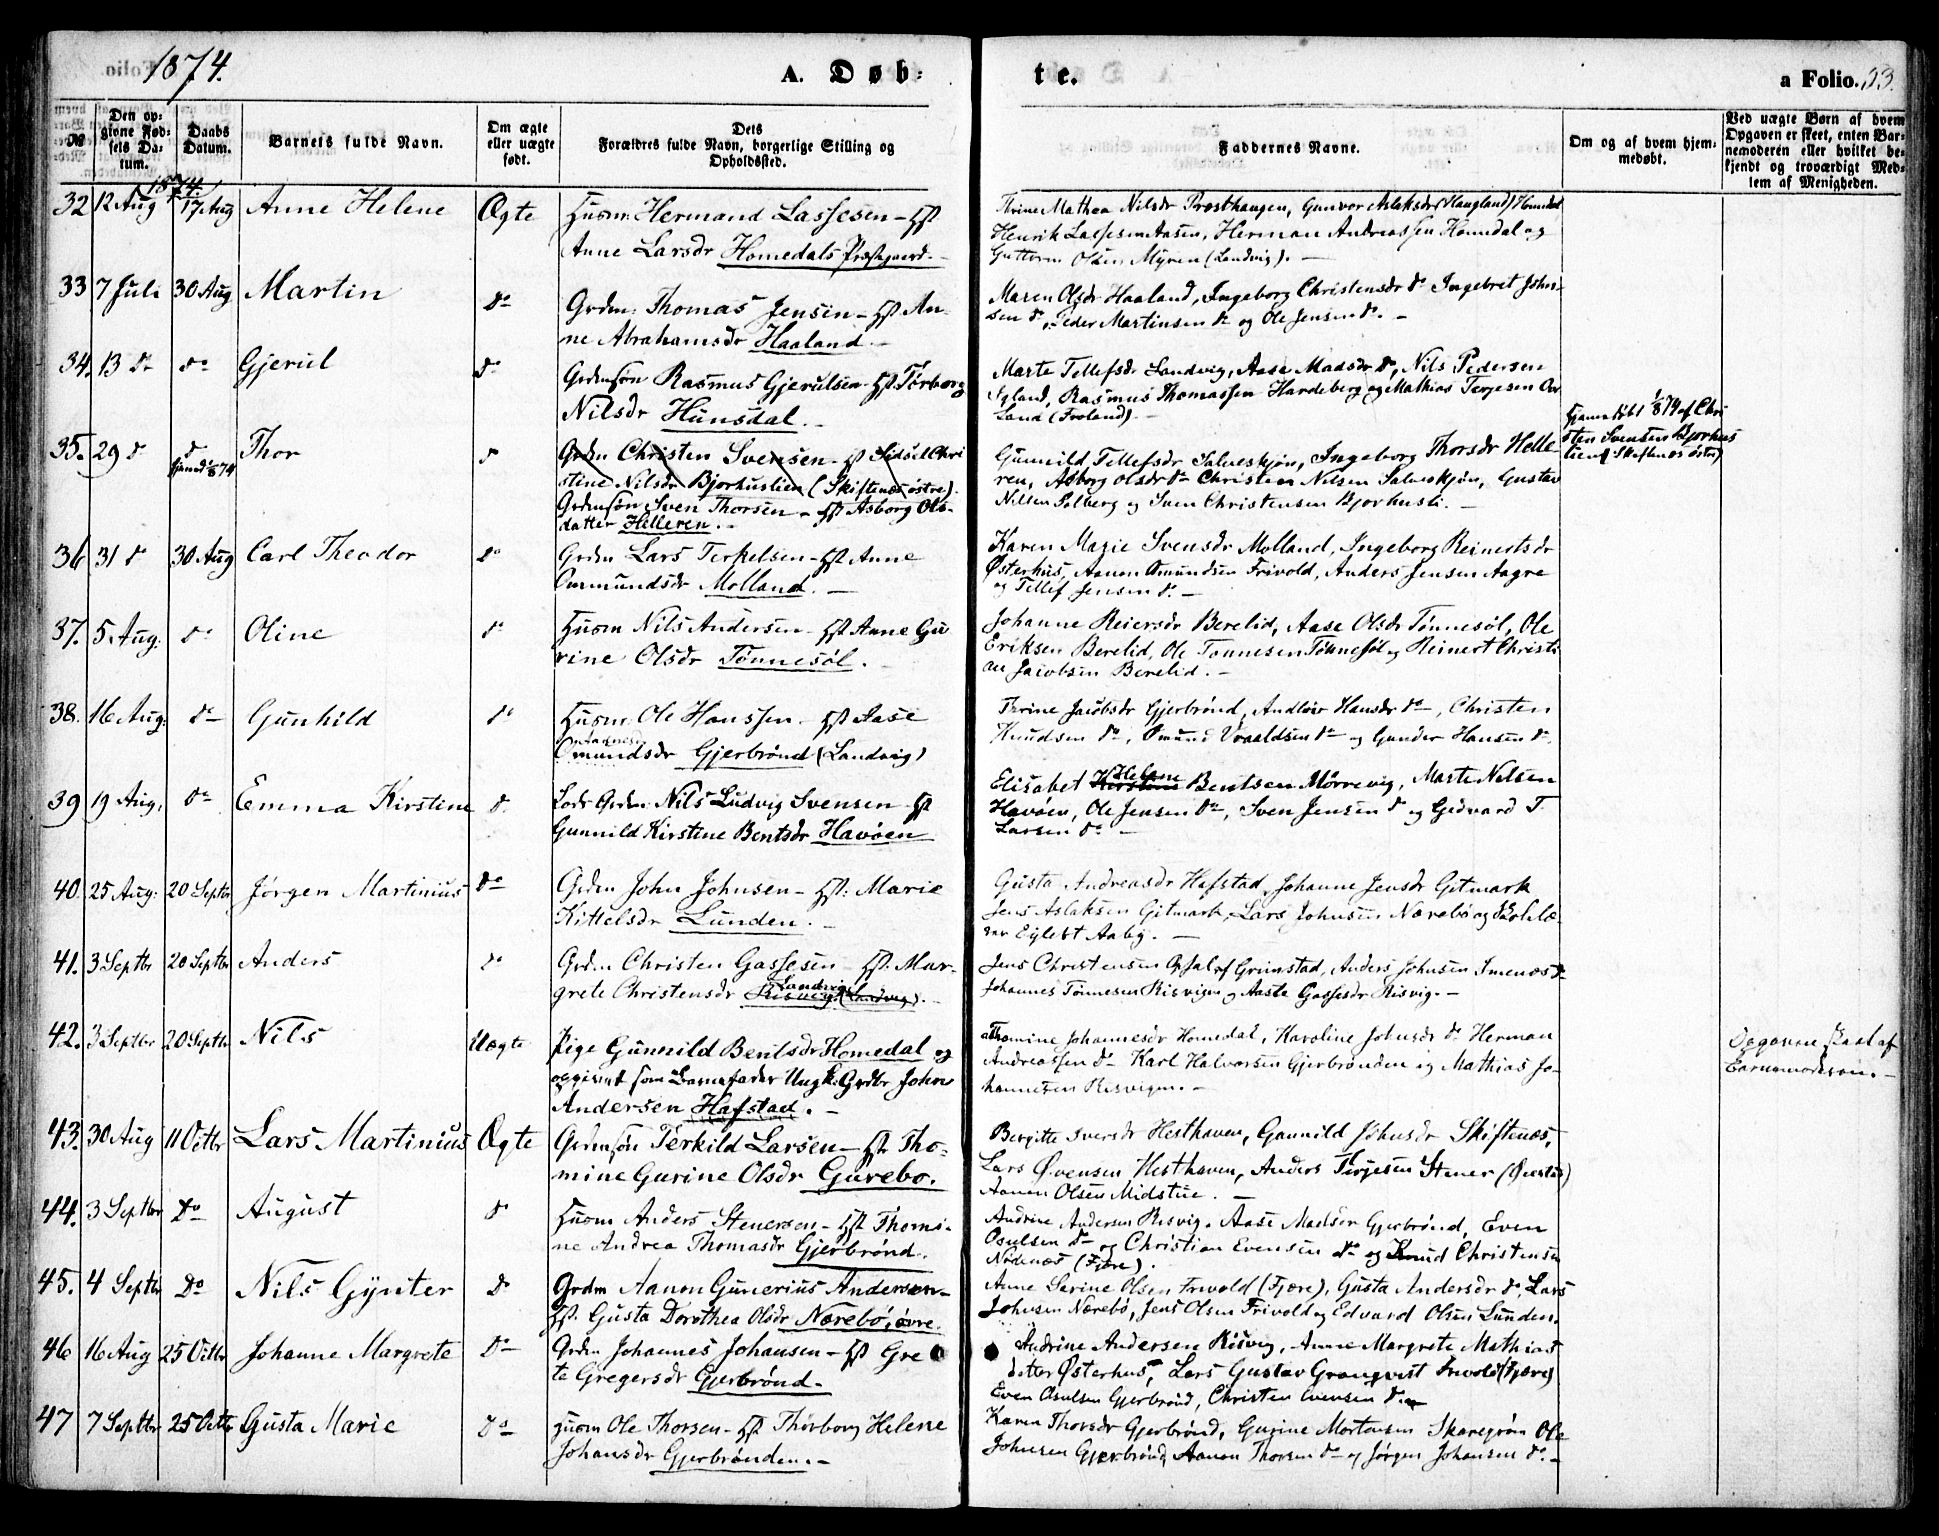 1874.
A. Døb-
te.
a Folio. 33.
№
Den op-
givne Fød-
sels Da-
tum.
Daabs
Datum.
Barnets fulde Navn.
Om ægte
eller uægte
født.
Dets
Forældres fulde Navn, borgerlige Stilling og
Opholdssted.
Faddernes Navne.
Om og af hvem hjem-
medøbt.
Ved uægte Børn af hvem
Opgaven er skeet, enten Bar-
nemoderen eller hvilket be-
kjendt og troværdigt Med-
lem af Menigheden.
1874.
32 12 Aug 17 Aug Anne Helene Ægte Husm. Hermand Lassesen - Hst
Anne Larsdr Homedals Præstgaard. -
Thrine Mathea Nilsdr Præsthaugen, Gunvor Aslaksdr (Haugland) Homdal
Henrik Lassesen Aasen, Herman Andreassen Homdal og
Guttorm Olsen Myren (Landvig). -
33 7 Juli 30 Aug Martin do Grdm. Thomas Jensen - Hst An-
ne Abrahamsdr Haaland. -
Maren Olsdr Haaland, Ingeborg Christensdr do Ingebret John-
sen do, Peder Martinsen do og Ole Jensen do. -
34. 13 do do Gjerul do Grdmsøn Rasmus Gjerulsen - Hst Torborg
Nilsdr Hunsdal. -
Marte Tellefsdr Landvig, Aase Madsdr do, Nils Pedersen
Igland, Rasmus Thomassen Hardeberg og Mathias Terjesen Ou
Land (Froland). -
35. 29 d d Thor d Grdm Christen Svensen - Hst Sidsel Chri
hjemd 1/8 74
stine Nilsdr Bjorhuslien (Skiftenæs østre).
Grdmsøn Sven Thorsen - Hst Asborg Ols-
datter Helleren. -
Gunnild Tellefsdr Salveskjøn, Ingeborg Thorsdr Helle
ren, Asborg Olsdr do Christen Nilsen Salveskjøn, Gustav
Nilsen Solberg og Sven Christensen Bjorhusli. -
Hjemmedøbt 1/8 74 af Chri
sten Svensen Bjorhus
lien (Skiftenæs østre)
36 31 d 30 Aug Carl Theodor do Grdm Lars Terkelsen - Hst Anne
Omundsdr Molland. -
Karen Marie Svensdr Molland, Ingeborg Reinertsdr
Østerhus, Aanon Omundsen Frivold, Anders Jensen Aagre
og Tellef Jensen do. -
37. 5 Aug: do Oline do Husm Nils Andersen - Hst Anne Gu
rine Olsdr Tønnesøl. -
Johanne Reiersdr Berelid, Aase Olsdr Tønnesøl, Ole
Eriksen Berelid, Ole Tønnesen Tønnesøl og Reinert Christi
an Jacobsen Berelid. -
38. 16 Aug: do Gunhild do Husm. Ole Hanssen - Hst Aase
Omundsdr Gjerbrønd (Landvig)
Thrine Jacobsdr Gjerbrønd, Andløir Hansdr do, Christen
Knudsen do, Omund Vraaldsen do og Gunder Hansen do.
39 19 Aug. do Emma Kirstine d. Lods Grdm. Nils Ludvig Svensen Hst
Gunnild Kirstine Bentsdr Havøen
Helene
Elisabet Kirstine Bentsen Mørrevig, Marte Nilsen
Havøen, Ole Jensen do, Sven Jensen d og Gedvard T.
Larsen do -
40. 25 Aug: 20 Septbr Jørgen Martinius do Grdm John Johnsen - Hst: Marie
Kittelsdr Lunden. -
Gusta Andreasdr Hafstad, Johanne Jensdr Gitmark
Jens Aslaksen Gitmark, Lars Johnsen Nærebø og Skolelæ-
rer Eylert Aaby. -
41. 3 Septbr 20 Septbr Anders do Grdm Christen Gassesen - Hst. Mar-
Landvig
grete Christensdr Risvig (Landvig). -
Jens Christensen Opsal af Grimstad, Anders Johnsen Imenæs d-
Johannes Tønnesen Risvigen og Aaste Gassesdr Risvig. -
42. 3 Septbr 20 Septbr Nils Uægte Pige Gunnild Bentsdr Homedal og
opgivet som Barnefader Ungk. Grdbr John
Andersen Hafstad. -
Thomine Johannesdr Homdal, Karoline Johnsdr do Herman
Andreassen do Karl Halvorsen Gjerbrønden og Mathias Jo-
hannesen Risvigen. -
Opgaven skeet af
Barnemoderen. -
43. 30 Aug 11 Octbr Lars Martinius Ægte Grdmsøn Terkild Larsen - Hst Tho-
mine Gurine Olsdr Gurebo.
Bergitte Iversdr Hesthaven, Gunnild Johnsdr Skiftenæs,
Lars Øvensen Hesthaven, Anders Terjesen Stener (Øiestad)
Aanon Olsen Midstue. -
44. 3 Septbr Do August d Husm Anders Stenersen - Hst Thomi-
ne Andrea Thomasdr Gjerbrønd.
Andrine Andersen Risvig. Aase Madsen Gjerbrønd, Even
Osulsen do og Christian Evensen do og Knud Christensen
Nødenæs (Fjære).
45. 4 Septbr Do Nils Gynter d Grdm Aanon Gunerius Andersen -
Hst. Gusta Dorothea Olsdr Nærebø, øvre.
Anne Serine Olsen Frivold (Fjære), Gusta Andersdr do, Lars
Johnsen Nærebø, Jens Olsen Frivold og Edvard Olsen Lunden.
46 16 Aug 25 Octbr Johanne Margrete do Grdm Johannes Johansen - Hst Gre
te Gregersdr Gjerbrønd. -
Andrine Andersen Risvig, Anne Margrete Mathias
datter Østerhus, Lars Gustav Granqvist Frivold (Fjære)
Even Osulsen Gjerbrønd, Christen Evensen do. -
47 7 Septbr 25 Octbr Gusta Marie do Husm Ole Thorsen - Hst Thorborg Helene
Johansdr Gjerbrønden. -
Karen Thorsdr Gjerbrønd, Gurine Mortensen Skaregrøn Ole
Johnsen Gjerbrønd, Aanon Thorsen do og Jørgen Johansen do. -